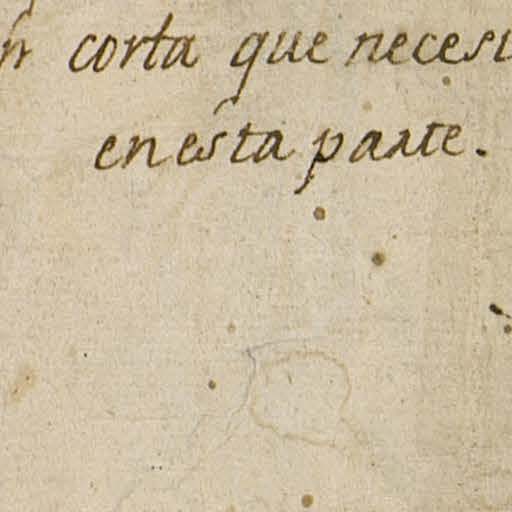 corta que necesi
en esta parte.